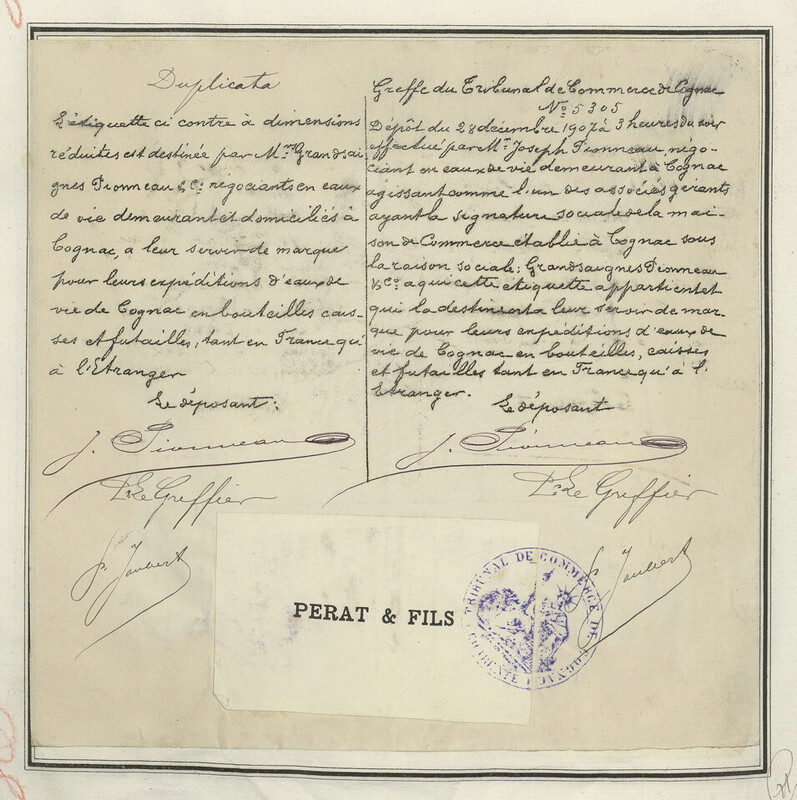 Duplicata
L'étiquette ci contre à dimensions
réduites est destinée par Mrs Grandsai-
gnes Pionneau & Cie négociants en eaux
de vie demeurant et domiciliés à
Cognac, a leur servir de marque
pour leurs expéditions d'eaux de
vie de Cognac en bouteilles cais-
ses et futailles, tant en France qu'
à l'Etranger
Le déposant:
J. Pionneau
Pr Le Greffier
P. Joubert
Greffe du Tribunal de Commerce de Cognac
No 5305
Dépôt du 28 décembre 1907 à 3 heures du soir
effectué par Mr Joseph Pionneau, négo-
ciant en eaux de vie demeurant à Cognac
agissant comme l'un des associés gérants
ayant la signature sociale de la mai-
son de Commerce établie à Cognac sous
la raison sociale: Grandsaignes Pionneau
& Co a qui cette étiquette appartient et
qui la destinent a leur servir de mar-
que pour leurs expéditions d'eaux de
vie de Cognac en bouteilles, caisses
et futailles tant en France qu'à l'
Etranger.
Le déposant
J. Pionneau
Pr Le Greffier
P. Joubert
PERAT & FILS
TRIBUNAL DE COMMERCE DE COGNAC
CHARENTE